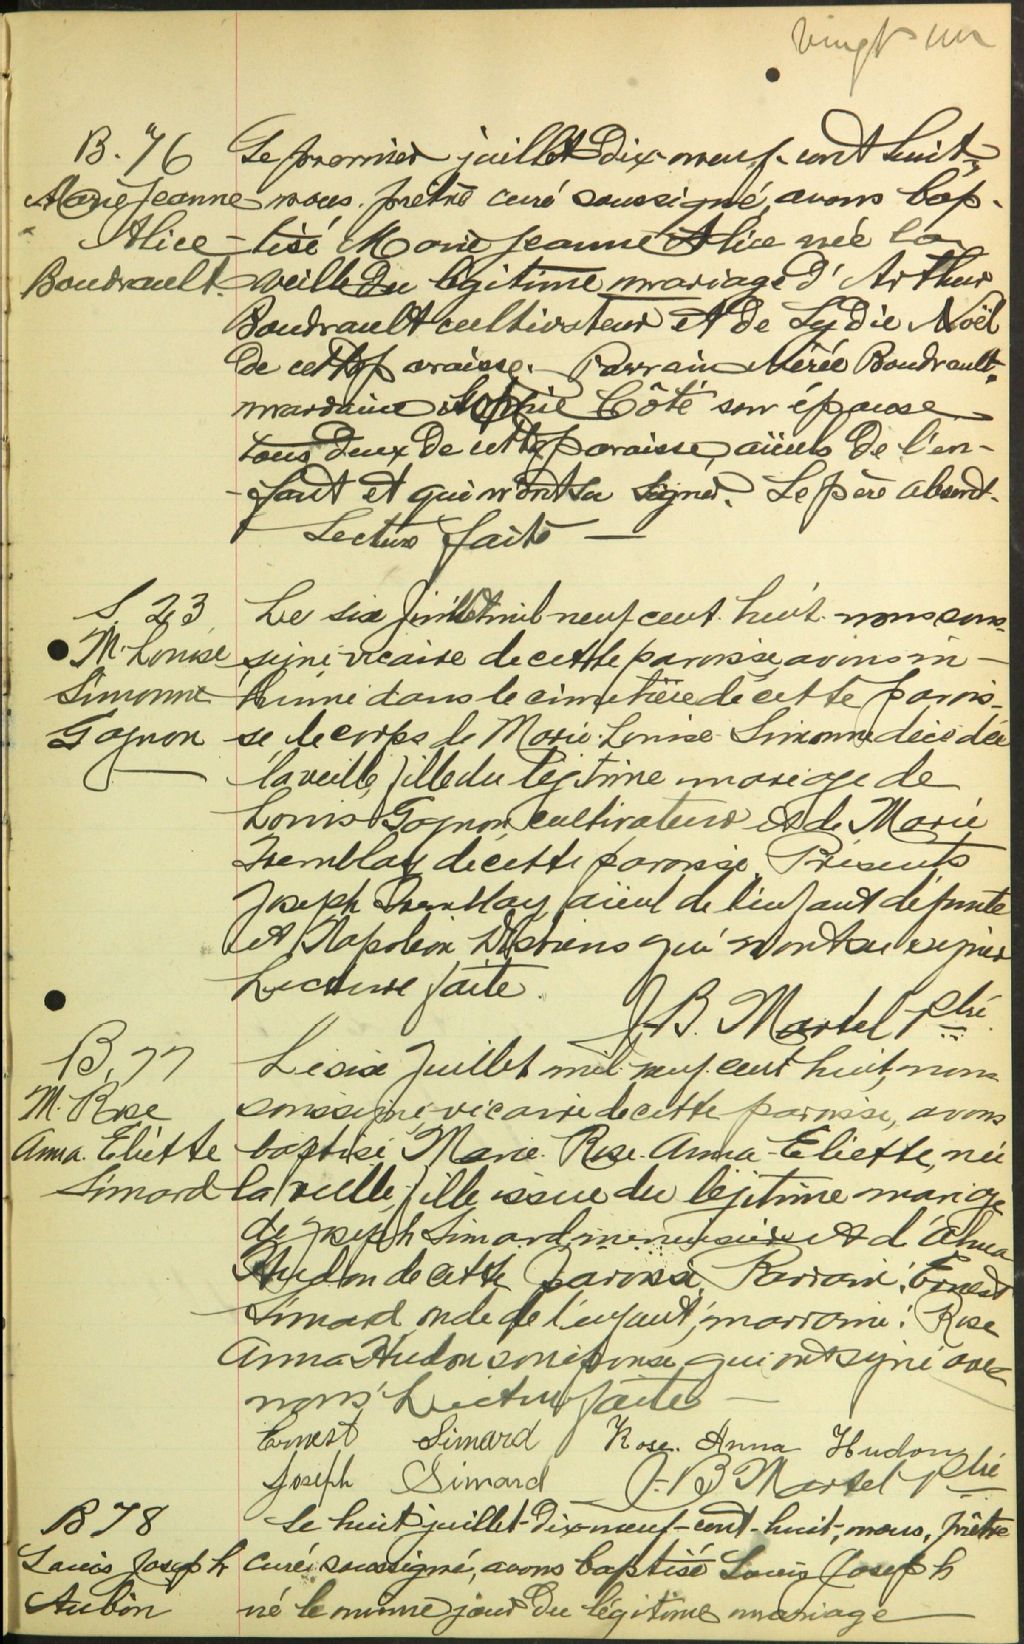 vingt un
B. 76
Marie Jeanne
Alice
Boudrault.
Le premier juillet Dix-neuf-cent huit,
nous prêtre curé soussigné, avons bap-
tisé Marie Jeanne Alice née la
veille du légitime mariage d'Arthur
Boudrault cultivateur et de Lydie Noël
de cette paroisse. Parrain Nérée Boudrault,
marraine Sophie Côté son épouse
tous deux de cette paroisse, aïeuls de l'en-
fant et qui n'ont su signer. Le père absent.
Lecture faite
S. 23
M. Louise
Simonne
Gagnon
Le six Juillet mil neuf cent huit nous sous-
signé vicaire de cette paroisse, avons in-
humé dans le cimetière de cette parois-
se le corps de Marie Louise Simonne décédée
la veille, fille du légitime mariage de
Louis Gagnon, cultivateur et de Marie
Tremblay de cette paroisse. Présents
Joseph Tremblay, aïeul de l'enfant défunte
et Napoléon qui n'ont su signer
Lecture faite.
J.B. Martel Ptre
B. 77
M. Rose
Anna Eliette
Simard
Le six Juillet mil neuf cent huit, nous
soussigné vicaire de cette paroisse, avons
baptisé Marie Rose Anna Eliette, née
la veille, fille issue du légitime mariage
de Joseph Simard menuisier et d'Alma
Hudon de cette paroisse. Parrain: Ernest
Simard, oncle de l'enfant, marraine: Rose
Anna Hudon son épouse, qui ont signé avec
nous. Lecture faite
Ernest Simard Rose Anna Hudon
Joseph Simard J.-B Martel Ptre
B 78
Louis Joseph
Aubin
Le huit juillet-dix-neuf-cent-huit, nous, prêtre
curé soussigné, avons baptisé Louis Joseph
né le même jour du légitime mariage